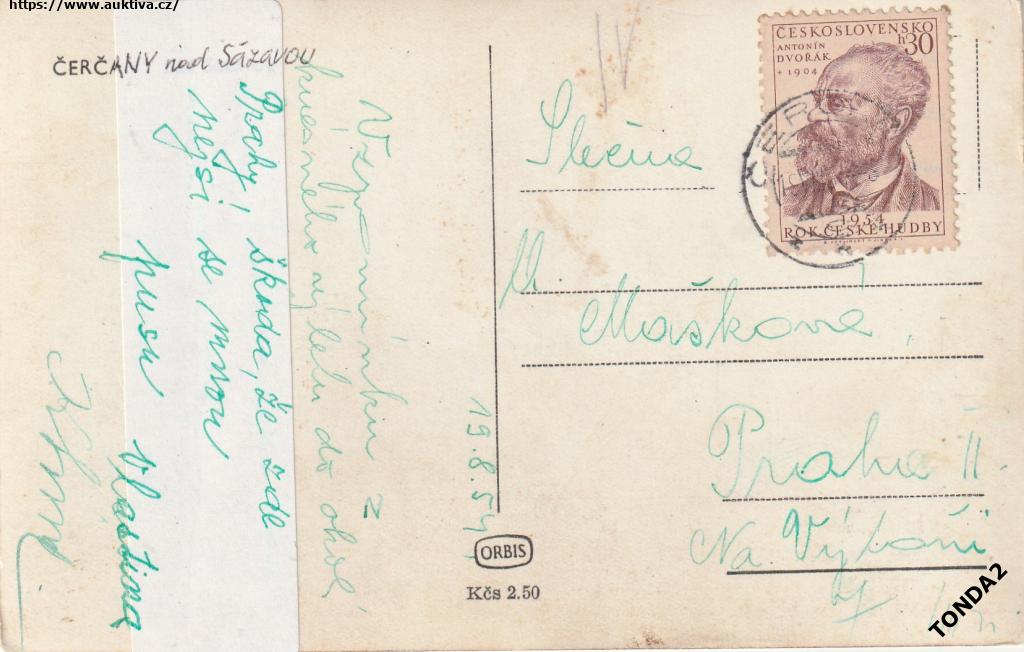 https://www.auktiva.cz/
ČERČANY nad Sázavou
Vzpomínku z
krásného výletu do okolí
Prahy! Škoda, že zde
nejsi se mnou
pusu Vlastina
19.8.54
ORBIS
Kčs 2.50
ČESKOSLOVENSKO
h 30
ANTONÍN
DVOŘÁK
+ 1904
1954
ROK ČESKÉ HUDBY
IV
Slečna
M.
Mašková
Praha II
Na Výtoni
TONDA2